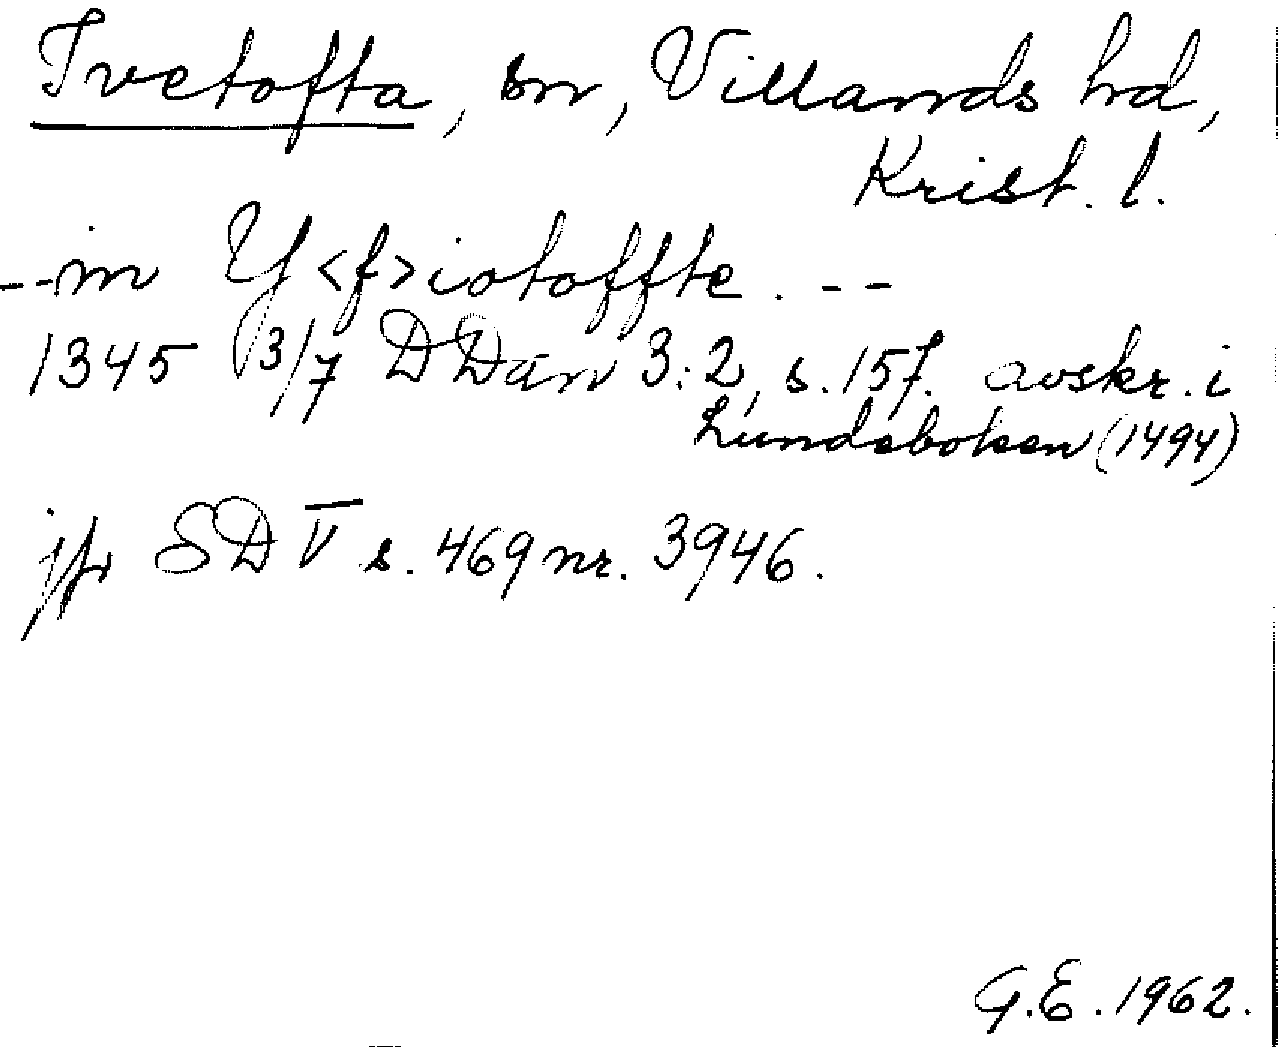 Ivetofta, sn, Villands hd,
Krist. l.
--in Y<f>iotoffte. --
1345 3/7 DDan 3:2, s. 157. avskr. i
Lundeboken (1494)
jfr SD V s. 469 nr. 3946.
G.E. 1962.